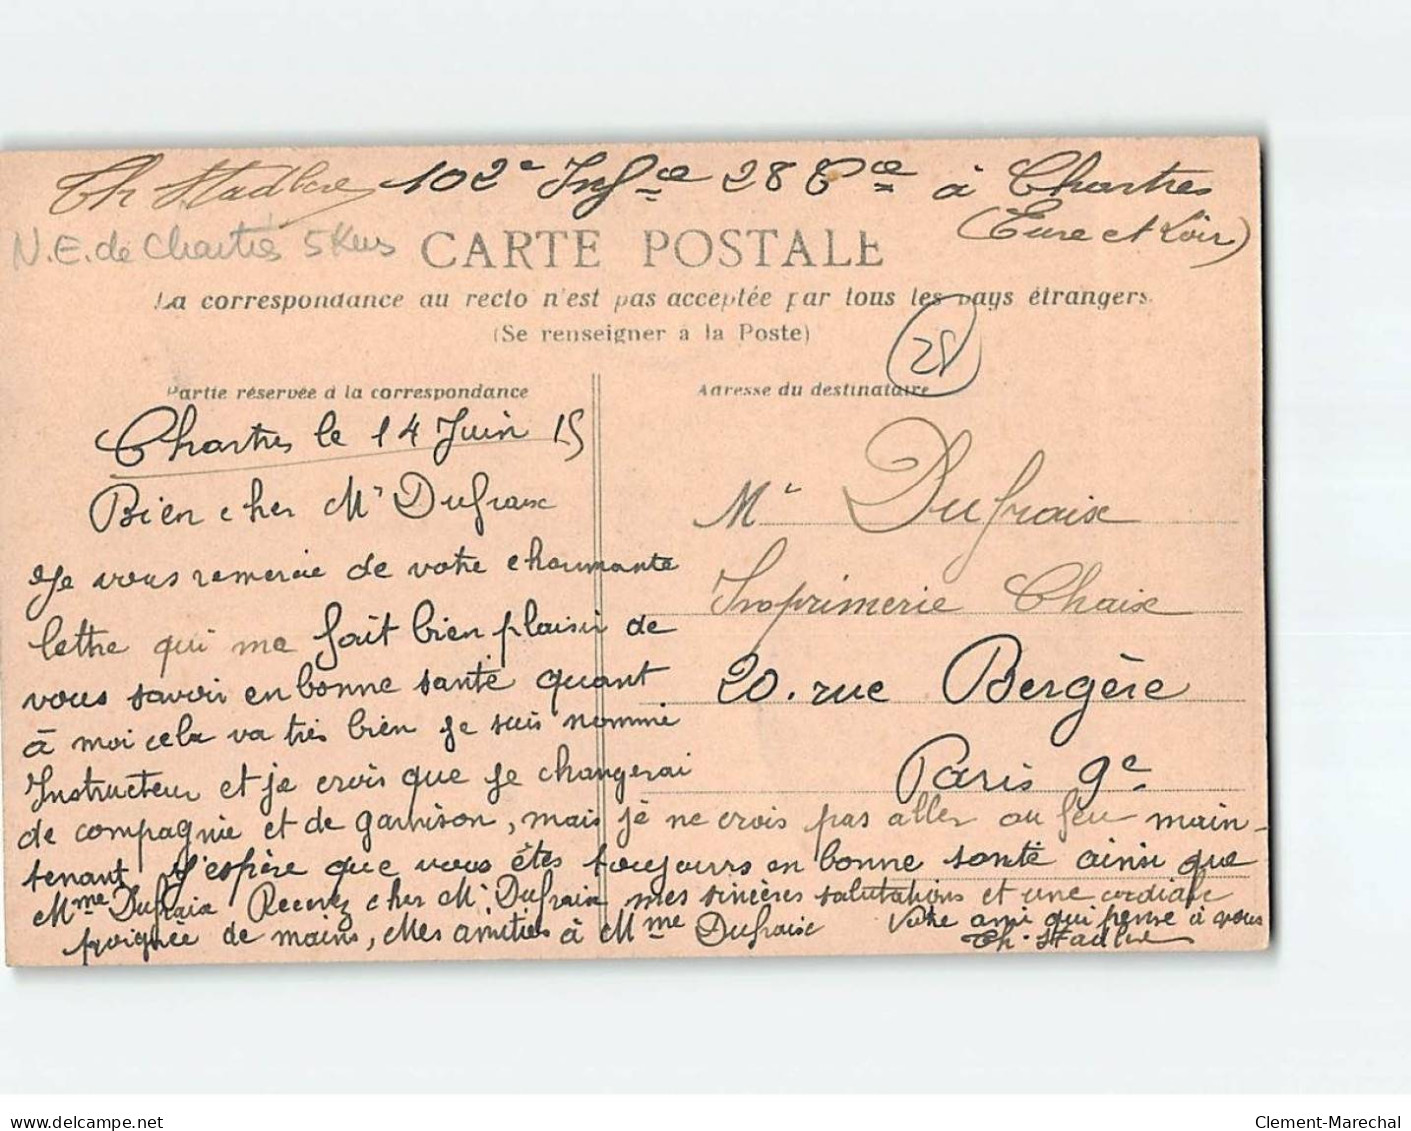 Th Stadbre 102e Infce 28 Cie à Chartres
(Eure et Loir)
N.E. de Chartres 5 Kms
CARTE POSTALE
La correspondance au recto n'est pas acceptée par tous les pays étrangers.
(Se renseigner à la Poste)
28
Partie réservée à la correspondance
Adresse du destinataire
Chartres le 14 Juin 15
Bien cher Mr Dufraix
Je vous remercie de votre charmante
lettre qui me fait bien plaisir de
vous savoir en bonne santé quant
à moi cela va très bien je suis nommé
Instructeur et je crois que je changerai
de compagnie et de garnison, mais je ne crois pas aller au feu main-
tenant J'espère que vous êtes toujours en bonne santé ainsi que
Mme Dufraix Recevez cher Mr Dufraix mes sincères salutations et une cordiale
poignée de mains, Mes amitiés à Mme Dufraix Votre ami qui pense à vous
Th. Stadbre
Mr Dufraix
Imprimerie Chaix
20. rue Bergère
Paris 9e
Clement-Marechal
www.delcampe.net